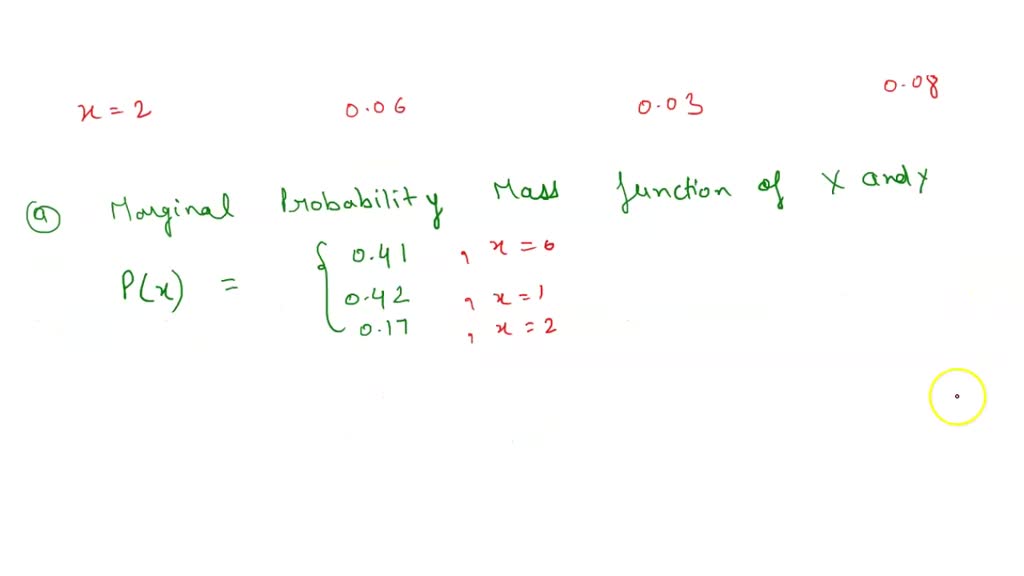 x = 2 0.06 0.03 0.08
(a) Marginal Probability Mass function of X and Y
P(x) = { 0.41 , x = 0
0.42 , x = 1
0.17 , x = 2